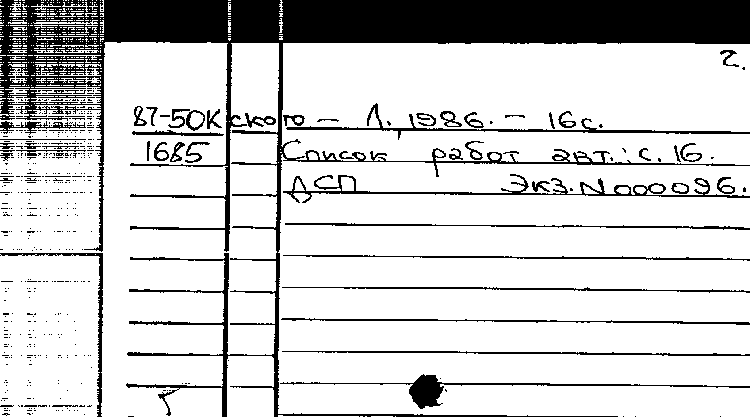 2.
87-50К ского – Л., 1986. – 16 с.
1685 Список работ авт.: с. 16.
ДСП Экз. N 000096.